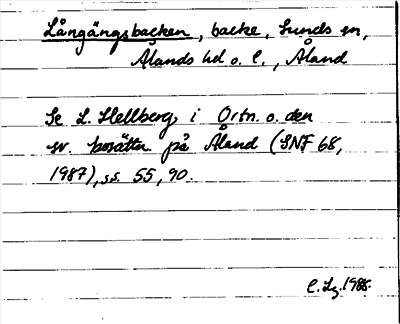 Långängsbacken, backe, Sunds sn,
Ålands hd o. l., Åland
Se L. Hellberg, i Ortn. o. den
sv. bosättn. på Åland (SNF 68,
1987), ss. 55, 90.
C. Lg. 1988.